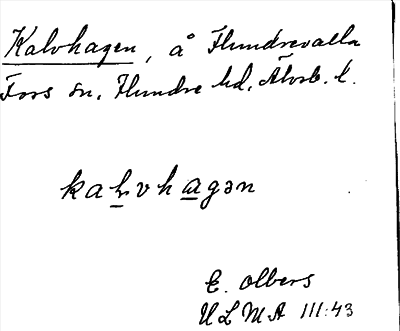 Kalvhagen, å Flundrevalla
Fors sn. Flundre hd. Älvsb. l.
kaḻvha̱gən
E. Olbers
ULMA 111:43